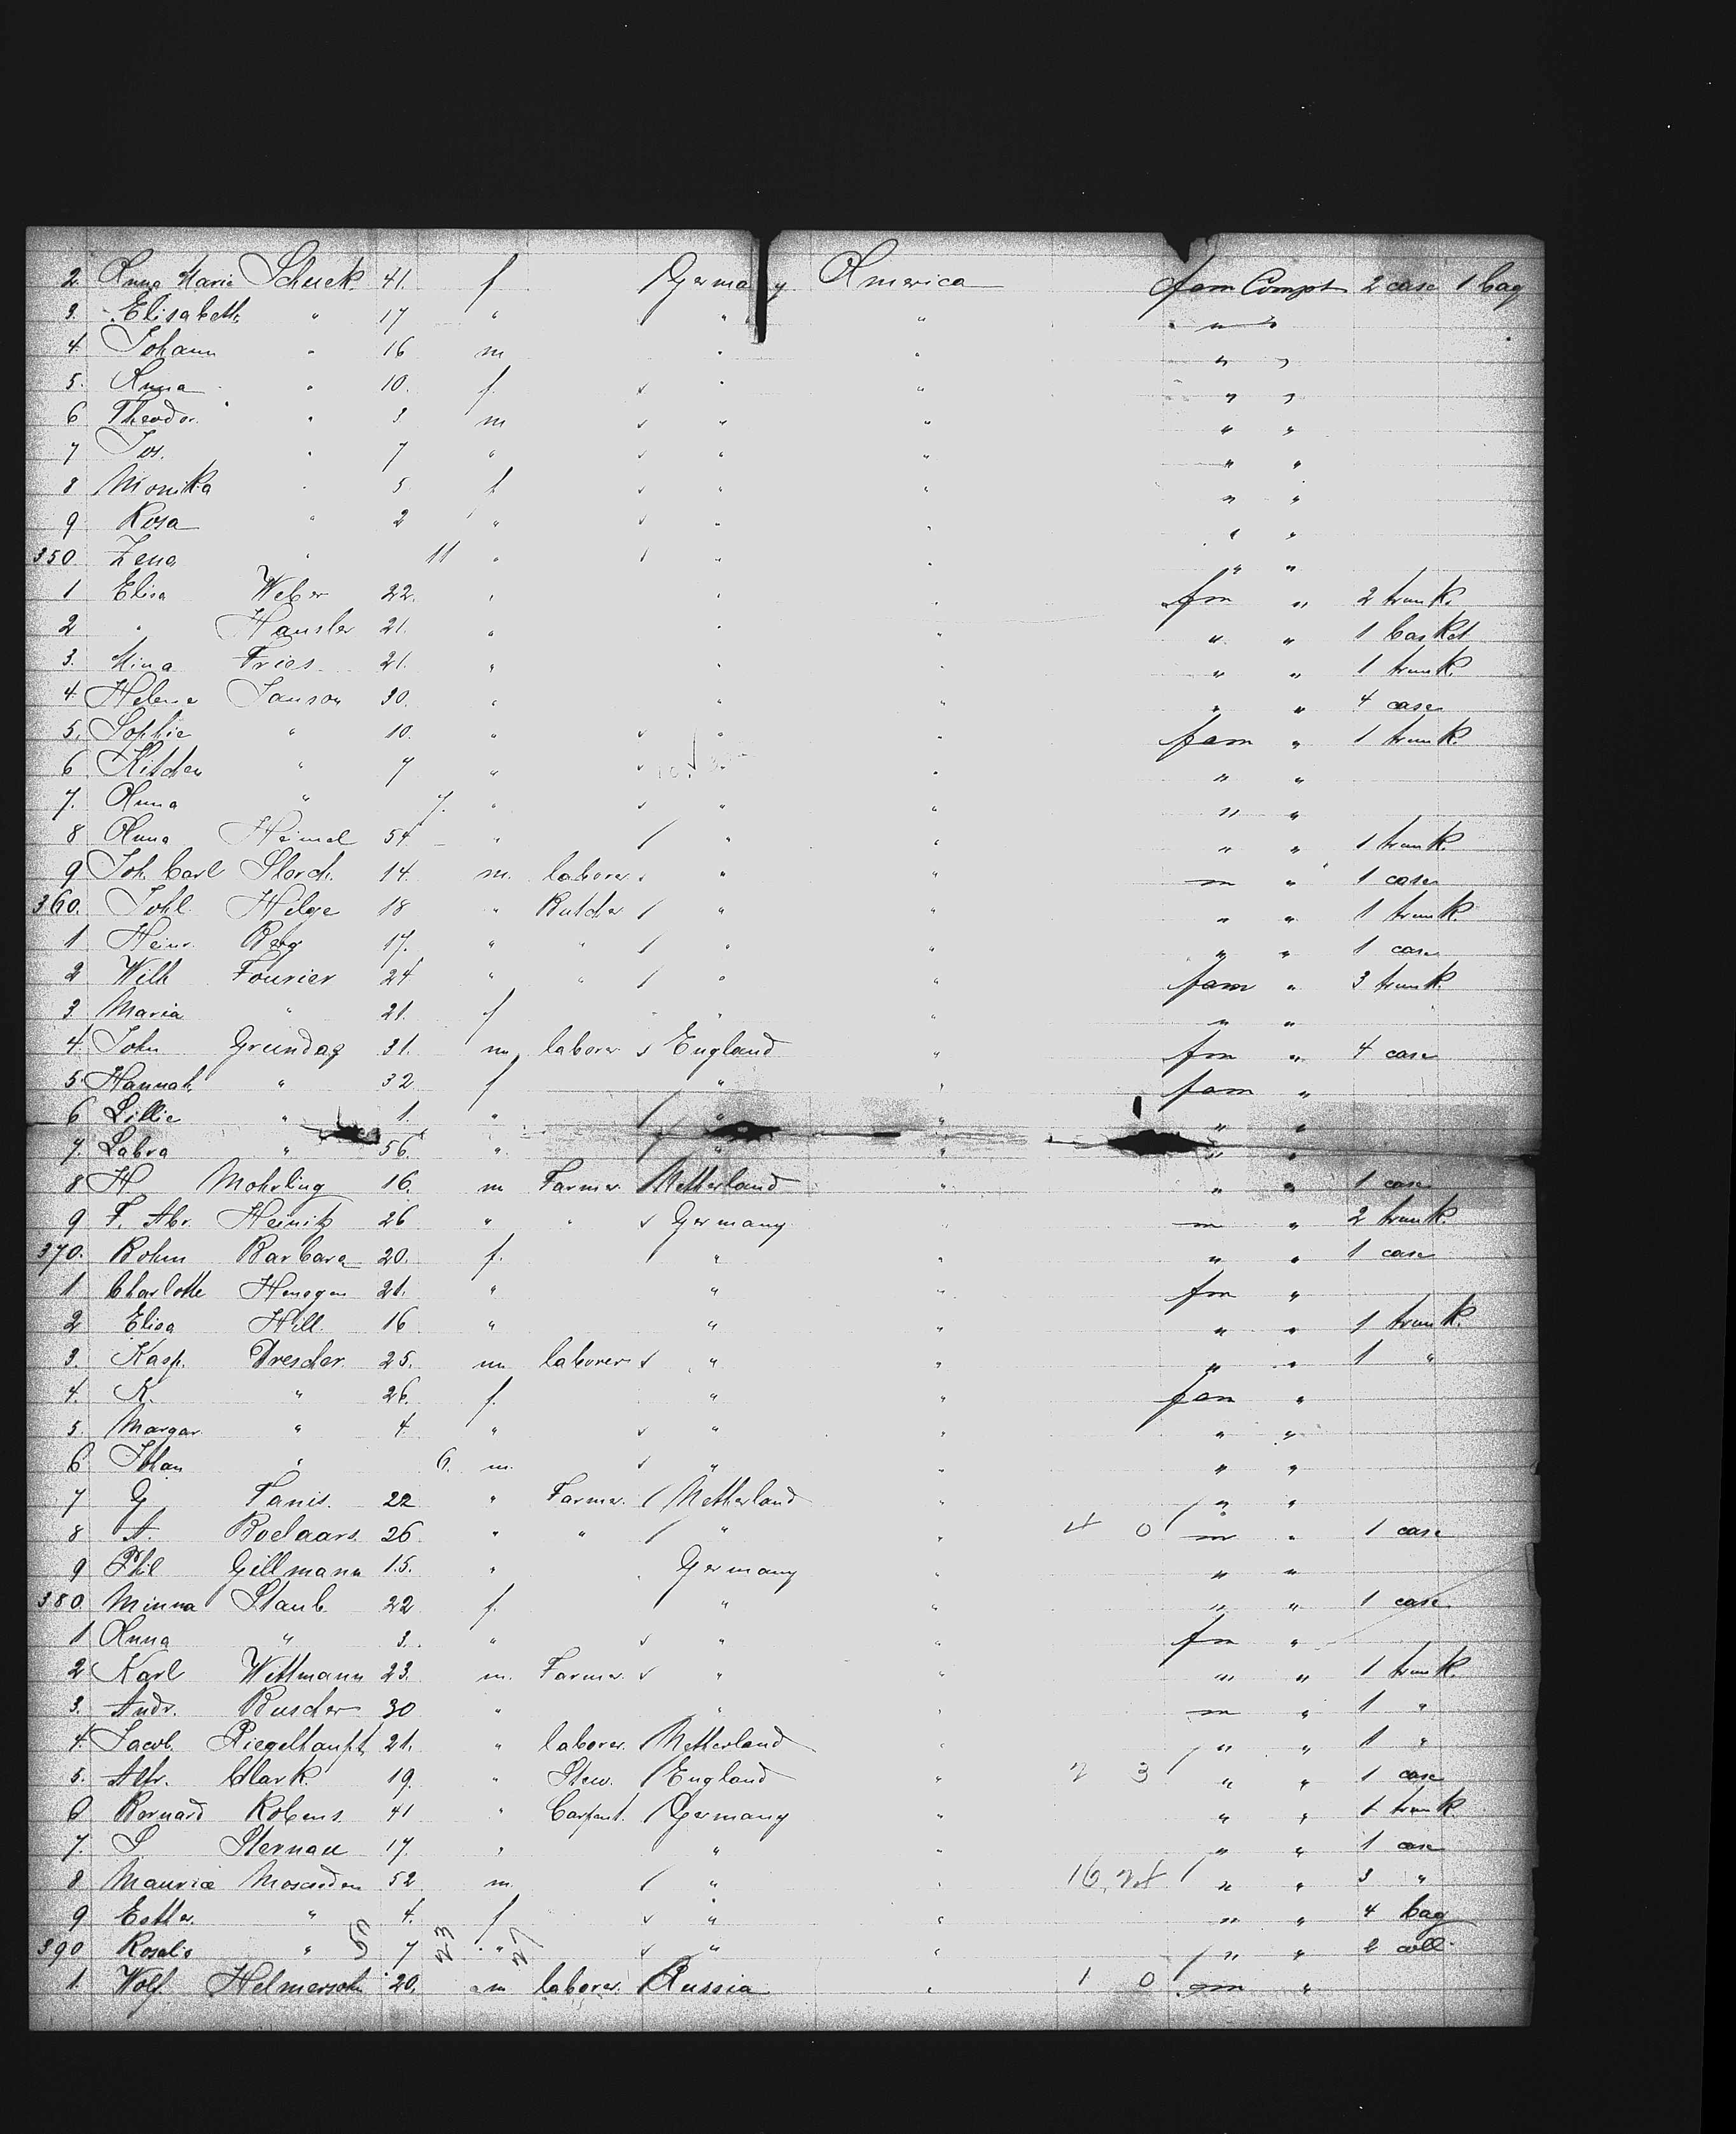 2. Anna Maria Schuck 41. f Germany America fam Compt 2 case 1 bag
3. Elisabeth " 17 " " " " "
4. Johann " 16 m " " " "
5. Anna " 10. f. " " " "
6 Theodor. " 3 m " " " "
7 Jos. " 7 " " " " "
8 Monika " 5 f " " " "
9 Rosa " 2 " " " " "
350. Lena " 11 " " " " "
1 Elisa Weber 22. " " " fm " 2 trunk.
2 " Hausler 21. " " " " " 1 basket
3. Mina Fries 21. " " " " " 1 trunk.
4. Helene Janson 30. " " " " " 4 case
5. Sophie " 10. " " " fam " 1 trunk.
6 " 7 " " " " "
7. Anna " 7. " " " " "
8 Anna Heimel 54 " " " " " 1 trunk.
9 Joh. Carl Storch. 14. m. laborer " " m " 1 case
360. Johl. Helge 18 " Butcher " " " " 1 trunk.
1 Heinr. Berg 17. " " " " " " 1 case
2 Wilh Fourier 24 " " " " fam " 3 trunk.
3. Maria " 21. f " " " "
4. John 31. m laborer England " fm " 4 case
5. Hannah " 32 f " " fam "
6 Lillie " 1. " " " " "
7. Labra " 56. " " " " "
8 H Mohrling 16. m Farmer Netherland " " " 1 case
9 F. Abr. Heinitz 26 " " Germany " m " 2 trunk.
370. Bohm Barbara 20. f. " " " " 1 case
1 Charlotte 21. " " " fm "
2 Elisa Hill 16 " " " " " 1 trunk.
3. Kasp. Drescher 25. m laborer " " " " 1 "
4. K. " 26. f. " " fam "
5. Margar. " 4. " " " " "
6 " 6. m. " " " "
7 G Tanis. 22 " Farmer. Netherland " " "
8 A. Roelaars 26. " " " " 4 0 m " 1 case
9 Phil Gillmann 15. " Germany " " "
380. Minna Staub 22 f. " " " " 1 case
1 Anna " 3. " " " fm "
2 Karl Wittmann 23. m. Farmer. " " " " 1 trunk.
3. Andr. Buscher 30 " " " m " 1 "
4. Jacob. Riegelhaupt 21. " laborer. Netherland " " " 1 "
5. Alfr. Clark. 19. " Stew. England " 2 3 " " 1 case
6 Bernard Robens. 41 " Carpent. Germany " " " 1 trunk.
7. S Sternau 17. " " " " " 1 case
8 Maurice 52. m. " " 16.24 " " 3 "
9 Esther. " 4. f " " " " 4 bag
390 Rosalie " 5 7 23 " 27 " " " " 2 coll.
1. Wolf. Helmersohn 20. m laborer. Russia " 1 0 m "